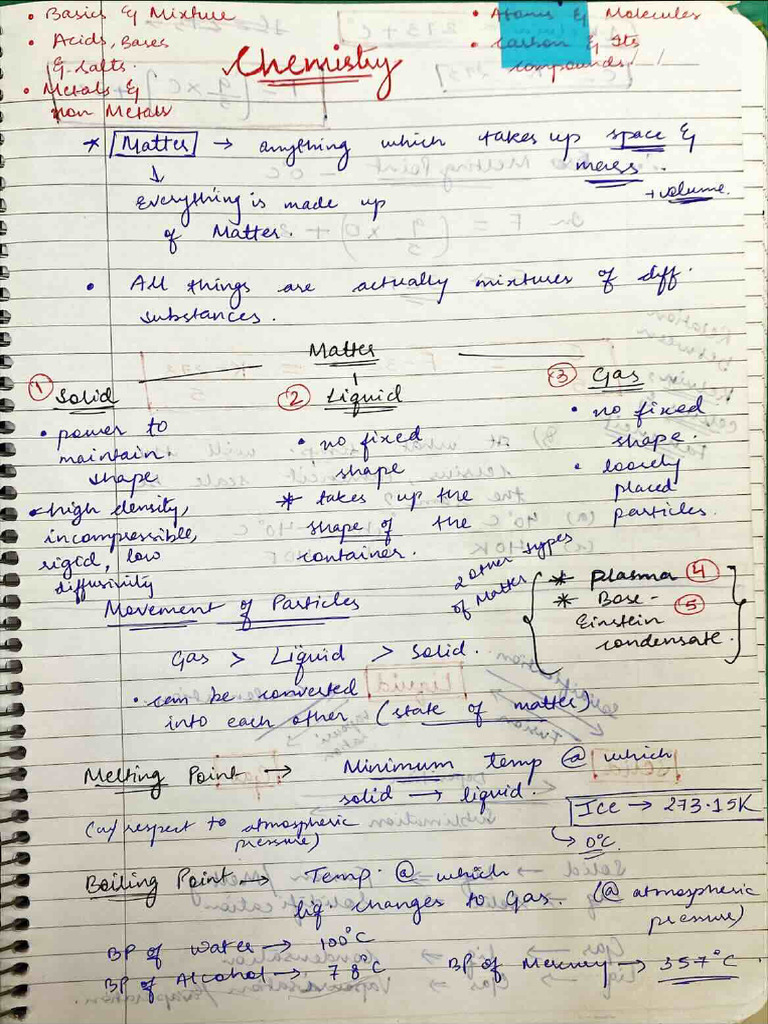 • Basics & Mixture
• Acids, Bases
& Salts.
• Metals &
non Metals
• Atoms & Molecules
• Carbon & Its
compounds
Chemistry
* Matter → anything which takes up space &
mass.
+ volume.
↓
Everything is made up
of Matter.
• All things are actually mixtures of diff.
substances.
Matter
① Solid
• power to
maintain
shape
• high density,
incompressible,
rigid, low
diffusivity
② Liquid
• no fixed
shape
* takes up the
shape of the
container.
③ Gas
• no fixed
shape.
• loosely
placed
particles.
2 other types
of Matter
* Plasma ④
* Bose- ⑤
Einstein
condensate.
Movement of Particles
Gas > Liquid > Solid.
• can be converted
into each other (state of matter)
Melting Point → Minimum temp @ which
solid → liquid.
(w/ respect to atmospheric
pressure)
Ice → 273.15K
↳ 0°C
Boiling Point → Temp. @ which
liq. changes to Gas. (@ atmospheric
pressure)
BP of Water → 100°C
BP of Alcohol → 78°C
BP of Mercury → 357°C